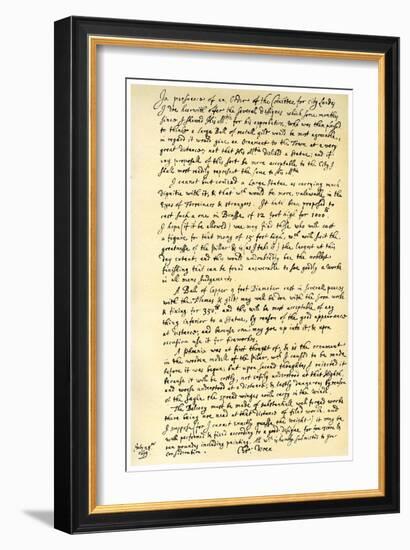 In pursuance of an Order of the Comittee for City Lands
I doe heerwith offer the severall designes which some monthes
since I shewed His Ma:tie for his approbation, who was then pleased
to thinke a large Ball of metall gilt would be most agreeable,
in regard it would give an Ornament to the Town at a very
great distance; not that His Ma:tie disliked a Statue; and if
any proposall of this sort be more acceptable to the City I
shall most readily represent the same to His Ma:tie
I cannot but commend a Large Statue as carrying much
dignitie with it, & that wch would be more valewable in the
Eyes of Forreiners & strangers. It hath been proposed to
cast such a one in Brasse of 12 foot high for 1000lb
I hope (if it be allowed) wee may find those who will cast
a figure for that mony of 15 foot high, wch will suit the
greatnesse of the Pillar & is (as I take it) the largest at this
day extant; and this would undoubtedly bee the noblest
finishing that can be found answerable to soe goodly a worke
in all mens Judgements.
A Ball of Copper 9 foot Diameter cast in severall peeces
with the Flames & gilt may well be don with the Iron worke
& fixing for 350lb and this will be most acceptable of any
thing inferior to a Statue, by reason of the good appearance
at distance, and because one may goe up into it; & upon
occasion use it for fireworkes.
A phoenix was at first thought of, & is the ornament
in the wooden modell of the pillar, wch I caused to be made
before it was begun, but upon second thoughtes I rejected it
because it will be costly, not easily understood at that Highth,
and worse understood at a distance; & lastly dangerous by reason
of the sayle the spread winges will carry in the winde.
The Balcony must be made of substantiall well forged worke
there being noe need at that distance of filed worke, and
I suppose (for I cannot exactly guesse the weight) it may be
well performed & fixed according to a good designe for
pounds including painting. All wch is humbly submitted to your
consideration.
July 28th
Chr: Wren